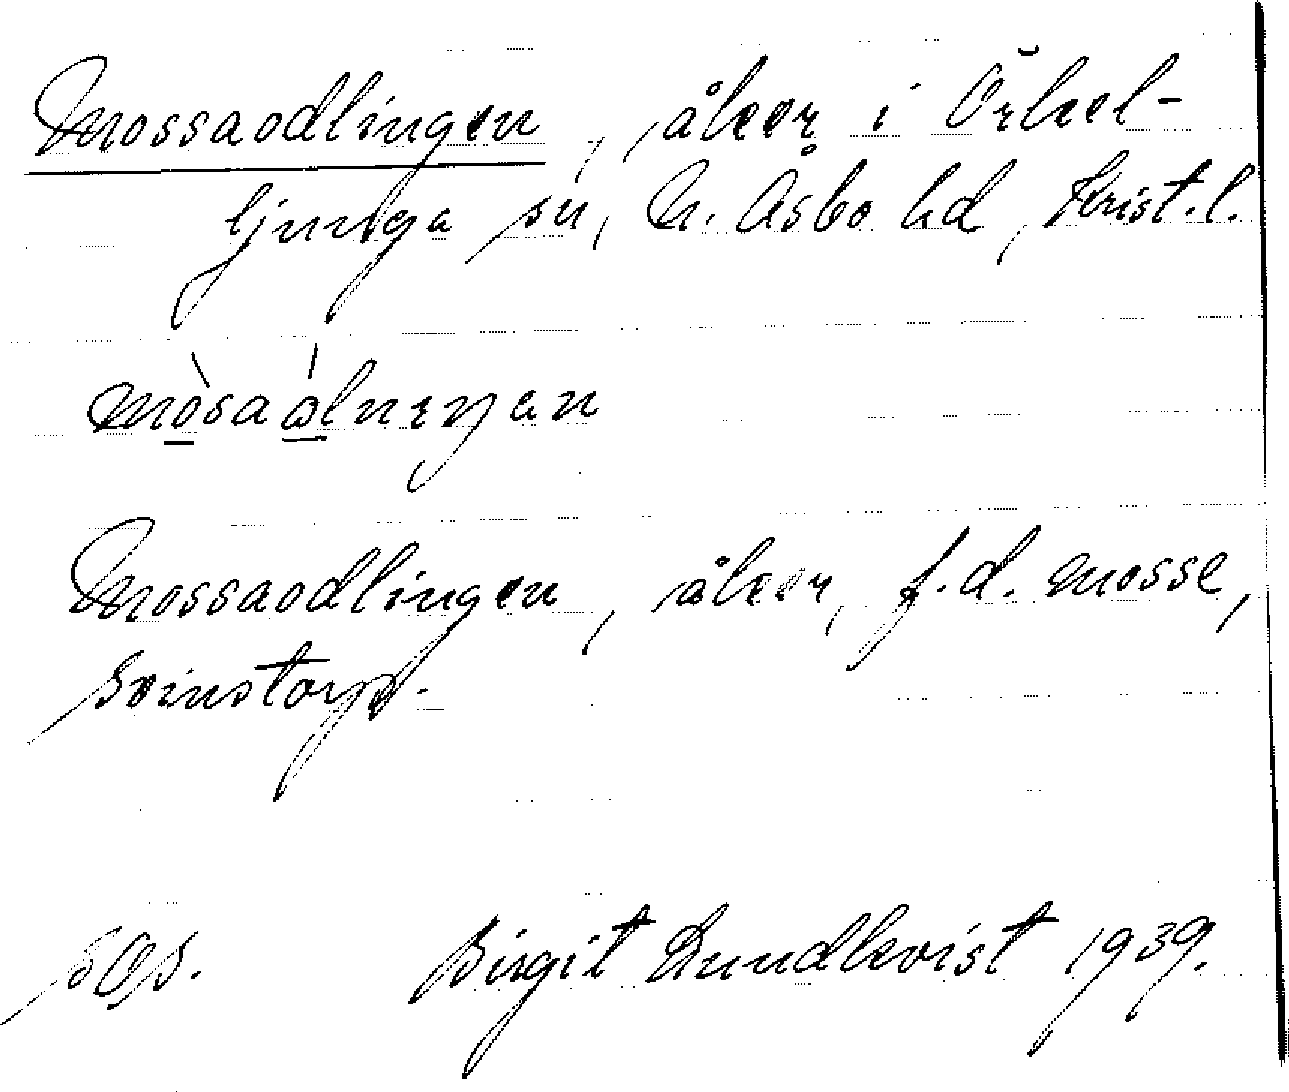 Mossaodlingen, åker i Örkel-
ljunga sn, N. Åsbo hd, Krist. l.
Mossaodlingen, åker, f.d. mosse,
Svinstorp.
Birgit Lundkvist 1939.